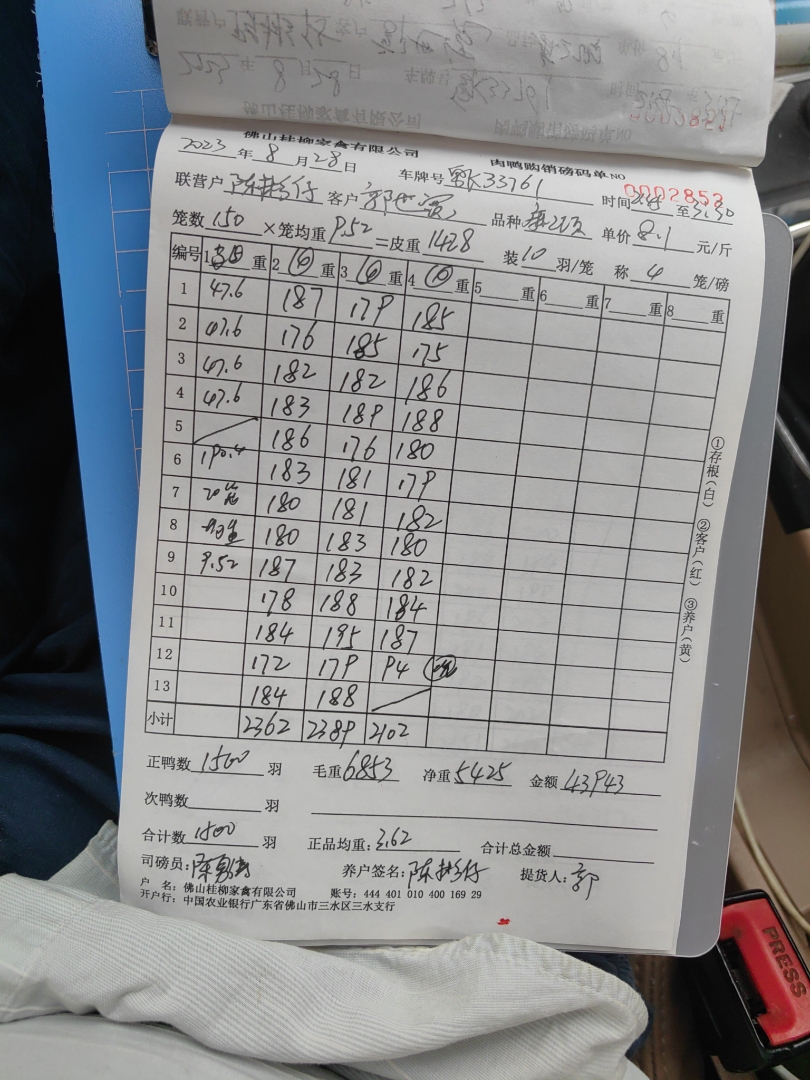 佛山桂柳家禽有限公司 肉鸭购销磅码单 NO 0002853
2023年8月28日 车牌号 粤K33761 时间 2:45 至 3:30
联营户 客户 品种 单价 8.1 元/斤
笼数 150 ×笼均重 9.52 =皮重 1428 装 10 羽/笼 称 4 笼/磅
编号 1 重 2 重 3 重 4 重 5 重 6 重 7 重 8 重
1 47.6 187 179 185
2 47.6 176 185 175
3 47.6 182 182 186
4 47.6 183 189 188
5 186 176 180
6 190.4 183 181 179
7 20 180 181 182
8 180 183 180
9 9.52 187 183 182
10 178 188 184
11 184 195 187
12 172 179 94
13 184 188
小计 2362 2389 2102
正鸭数 1500 羽 毛重 6853 净重 5425 金额 43943
次鸭数 羽
合计数 1500 羽 正品均重: 3.62 合计总金额
司磅员: 养户签名: 提货人: 郭
户 名: 佛山桂柳家禽有限公司 账号: 444 401 010 400 169 29
开户行: 中国农业银行广东省佛山市三水区三水支行
①存根(白) ②客户(红) ③养户(黄)
PRESS